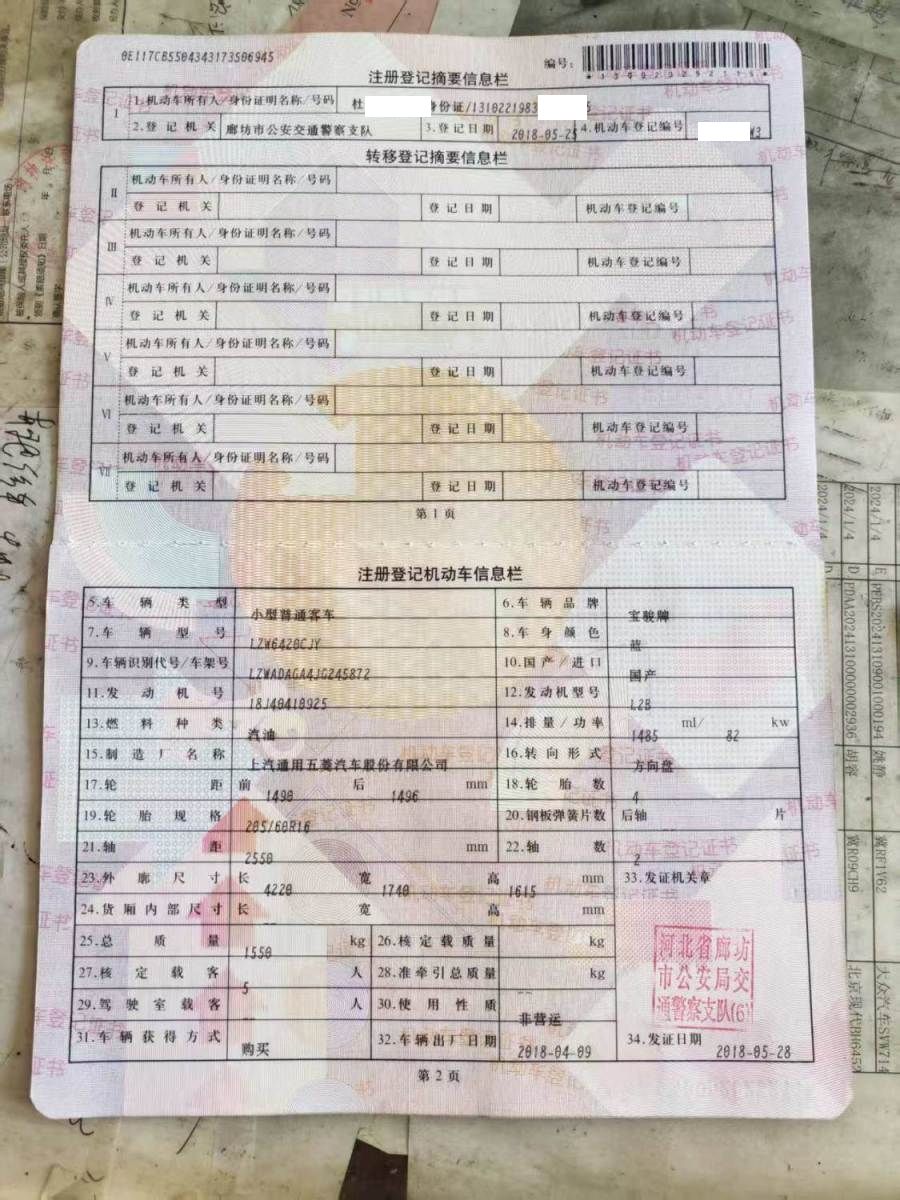 0E117CB5504343173506945
编号：
*130020292115*
注册登记摘要信息栏
I 1.机动车所有人/身份证明名称/号码 杜 身份证/1310221983 5
2.登记机关 廊坊市公安交通警察支队 3.登记日期 2018-05-25 4.机动车登记编号 W3
转移登记摘要信息栏
II 机动车所有人/身份证明名称/号码
登记机关 登记日期 机动车登记编号
III 机动车所有人/身份证明名称/号码
登记机关 登记日期 机动车登记编号
IV 机动车所有人/身份证明名称/号码
登记机关 登记日期 机动车登记编号
V 机动车所有人/身份证明名称/号码
登记机关 登记日期 机动车登记编号
VI 机动车所有人/身份证明名称/号码
登记机关 登记日期 机动车登记编号
VII 机动车所有人/身份证明名称/号码
登记机关 登记日期 机动车登记编号
第1页
注册登记机动车信息栏
5.车辆类型 小型普通客车 6.车辆品牌 宝骏牌
7.车辆型号 LZW6420CJY 8.车身颜色 蓝
9.车辆识别代号/车架号 LZWADAGA4JG245872 10.国产/进口 国产
11.发动机号 18J40410925 12.发动机型号 L2B
13.燃料种类 汽油 14.排量/功率 1485 ml/ 82 kw
15.制造厂名称 上汽通用五菱汽车股份有限公司 16.转向形式 方向盘
17.轮距 前 1490 后 1496 mm 18.轮胎数 4
19.轮胎规格 205/60R16 20.钢板弹簧片数 后轴 -- 片
21.轴距 2550 mm 22.轴数 2
23.外廓尺寸 长 4220 宽 1740 高 1615 mm 33.发证机关章
24.货厢内部尺寸 长 -- 宽 -- 高 -- mm
25.总质量 1550 kg 26.核定载质量 -- kg
27.核定载客 5 人 28.准牵引总质量 -- kg
29.驾驶室载客 -- 人 30.使用性质 非营运
31.车辆获得方式 购买 32.车辆出厂日期 2018-04-09 34.发证日期 2018-05-28
河北省廊坊
市公安局交
通警察支队(6)
第2页